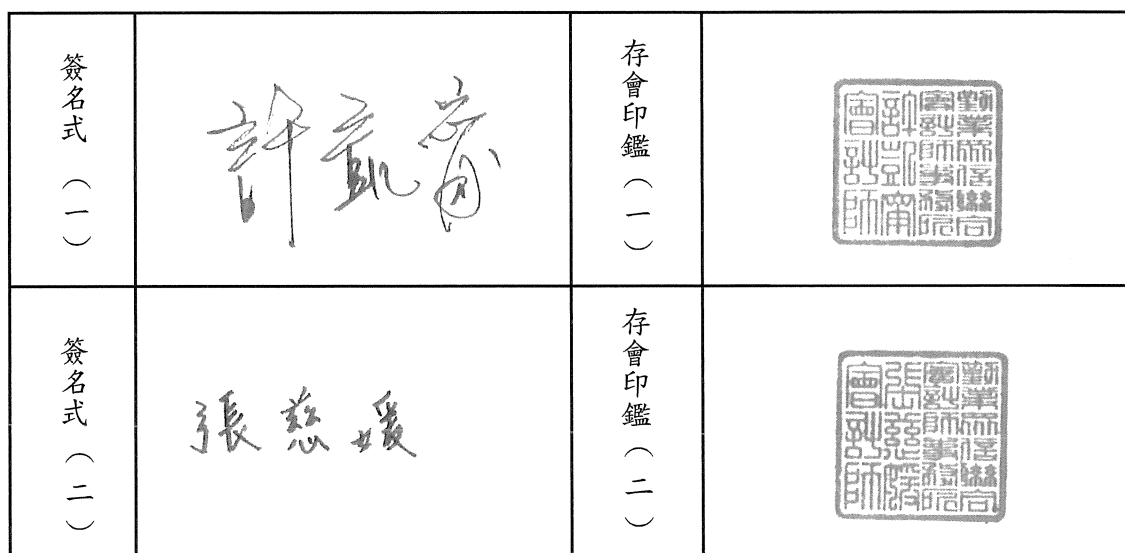 簽名式（一）
許凱甯
存會印鑑（一）
勤業眾信聯合
會計師事務所
許凱甯
會計師
簽名式（二）
張慈媛
存會印鑑（二）
勤業眾信聯合
會計師事務所
張慈媛
會計師